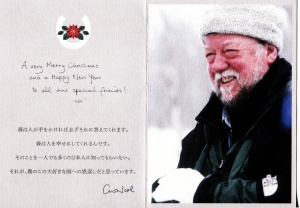 A very Merry Christmas
and a Happy New Year
to all our special friends!
森は人が手をかければ必ずそれに答えてくれます。
森は人を幸せにしてくれるんです。
そのことを一人でも多くの日本人に知ってもらいたい。
それが、僕のこの大好きな国への恩返しだと思っています。